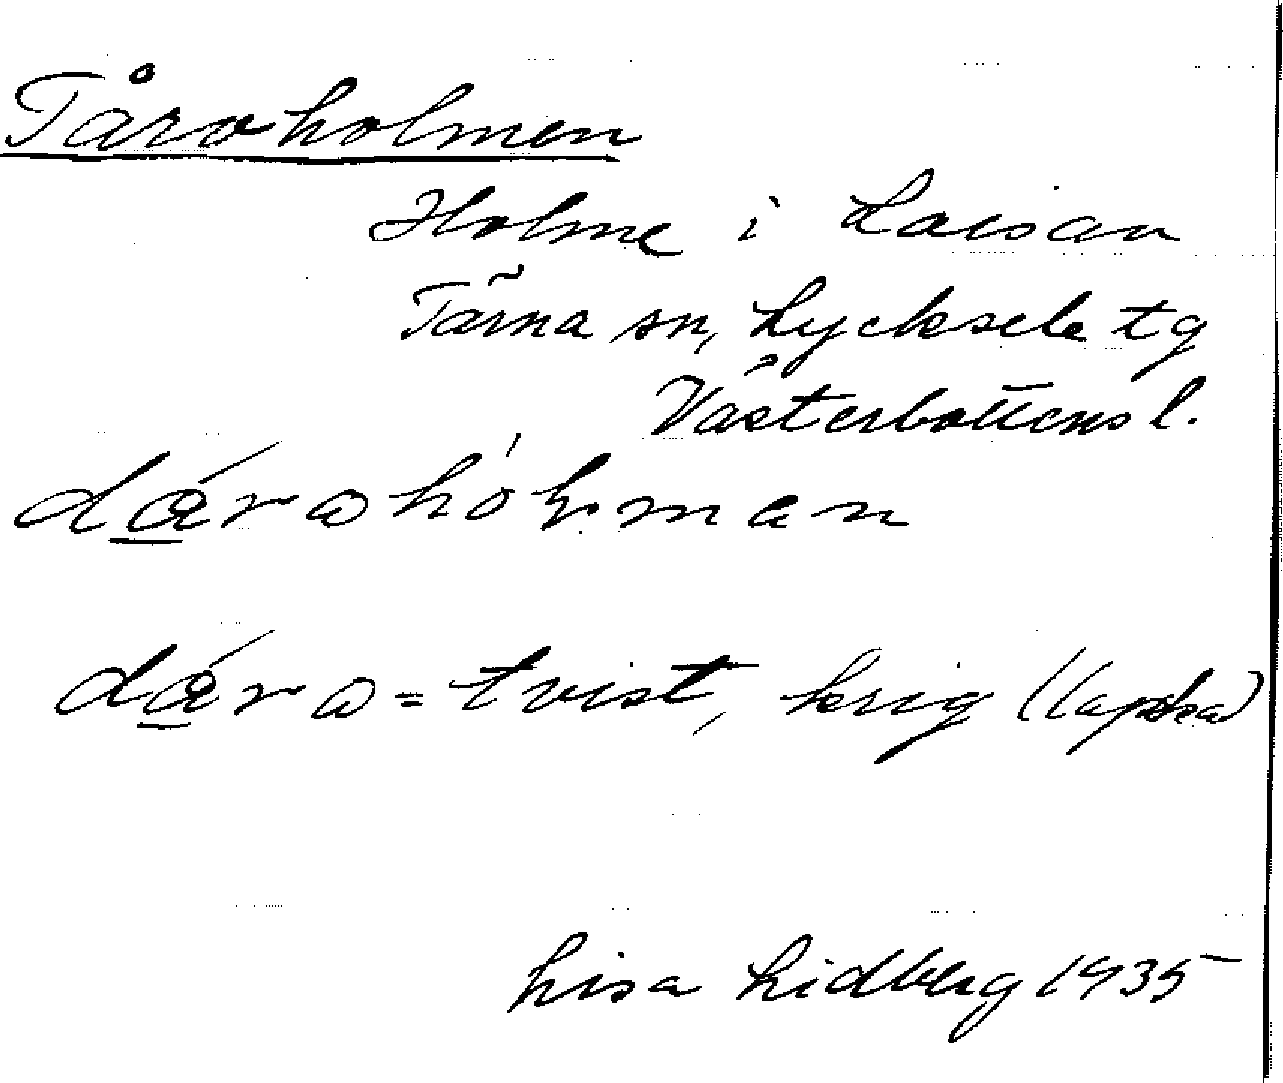 Tåroholmen
Holme i Laisan
Tärna sn, Lycksele tg
Västerbottens l.
dárohólman
dáro = tvist, krig (lapska)
Lisa Lidberg 1935